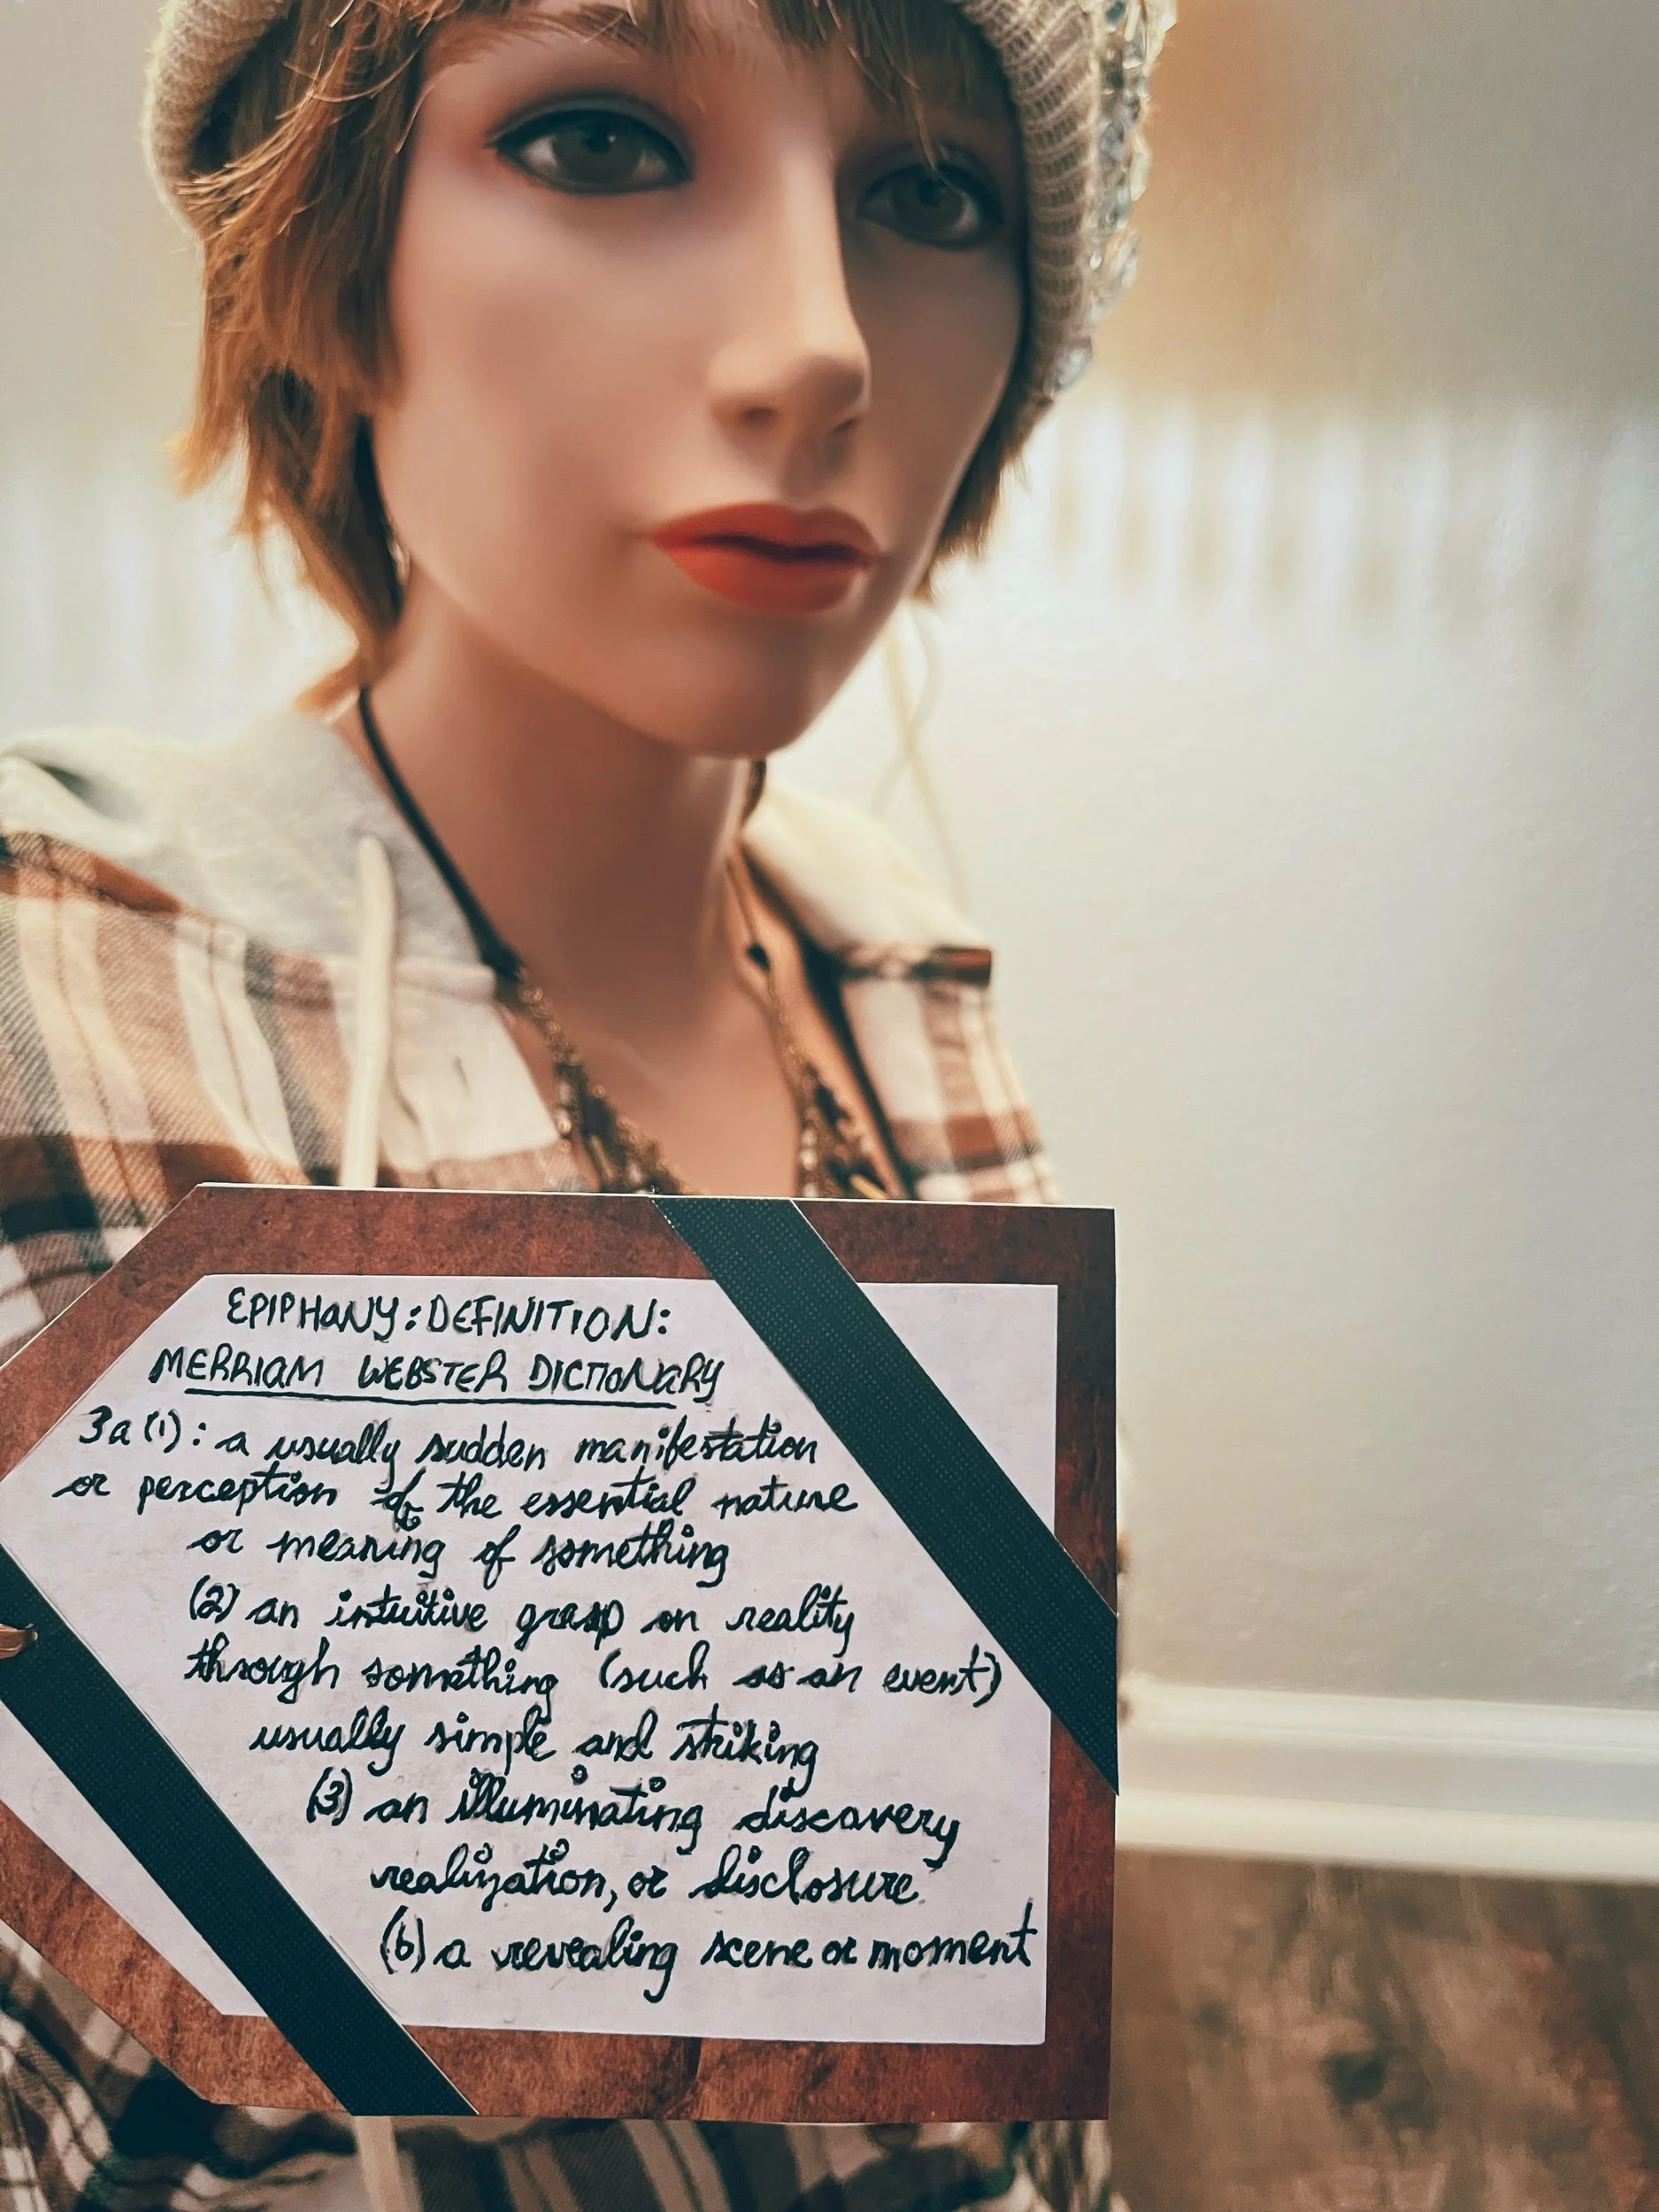 EPIPHANY: DEFINITION:
MERRIAM WEBSTER DICTIONARY
3a(1): a usually sudden manifestation
or perception of the essential nature
or meaning of something
(2) an intuitive grasp on reality
through something (such as an event)
usually simple and striking
(3) an illuminating discovery
realization, or disclosure
(b) a revealing scene or moment